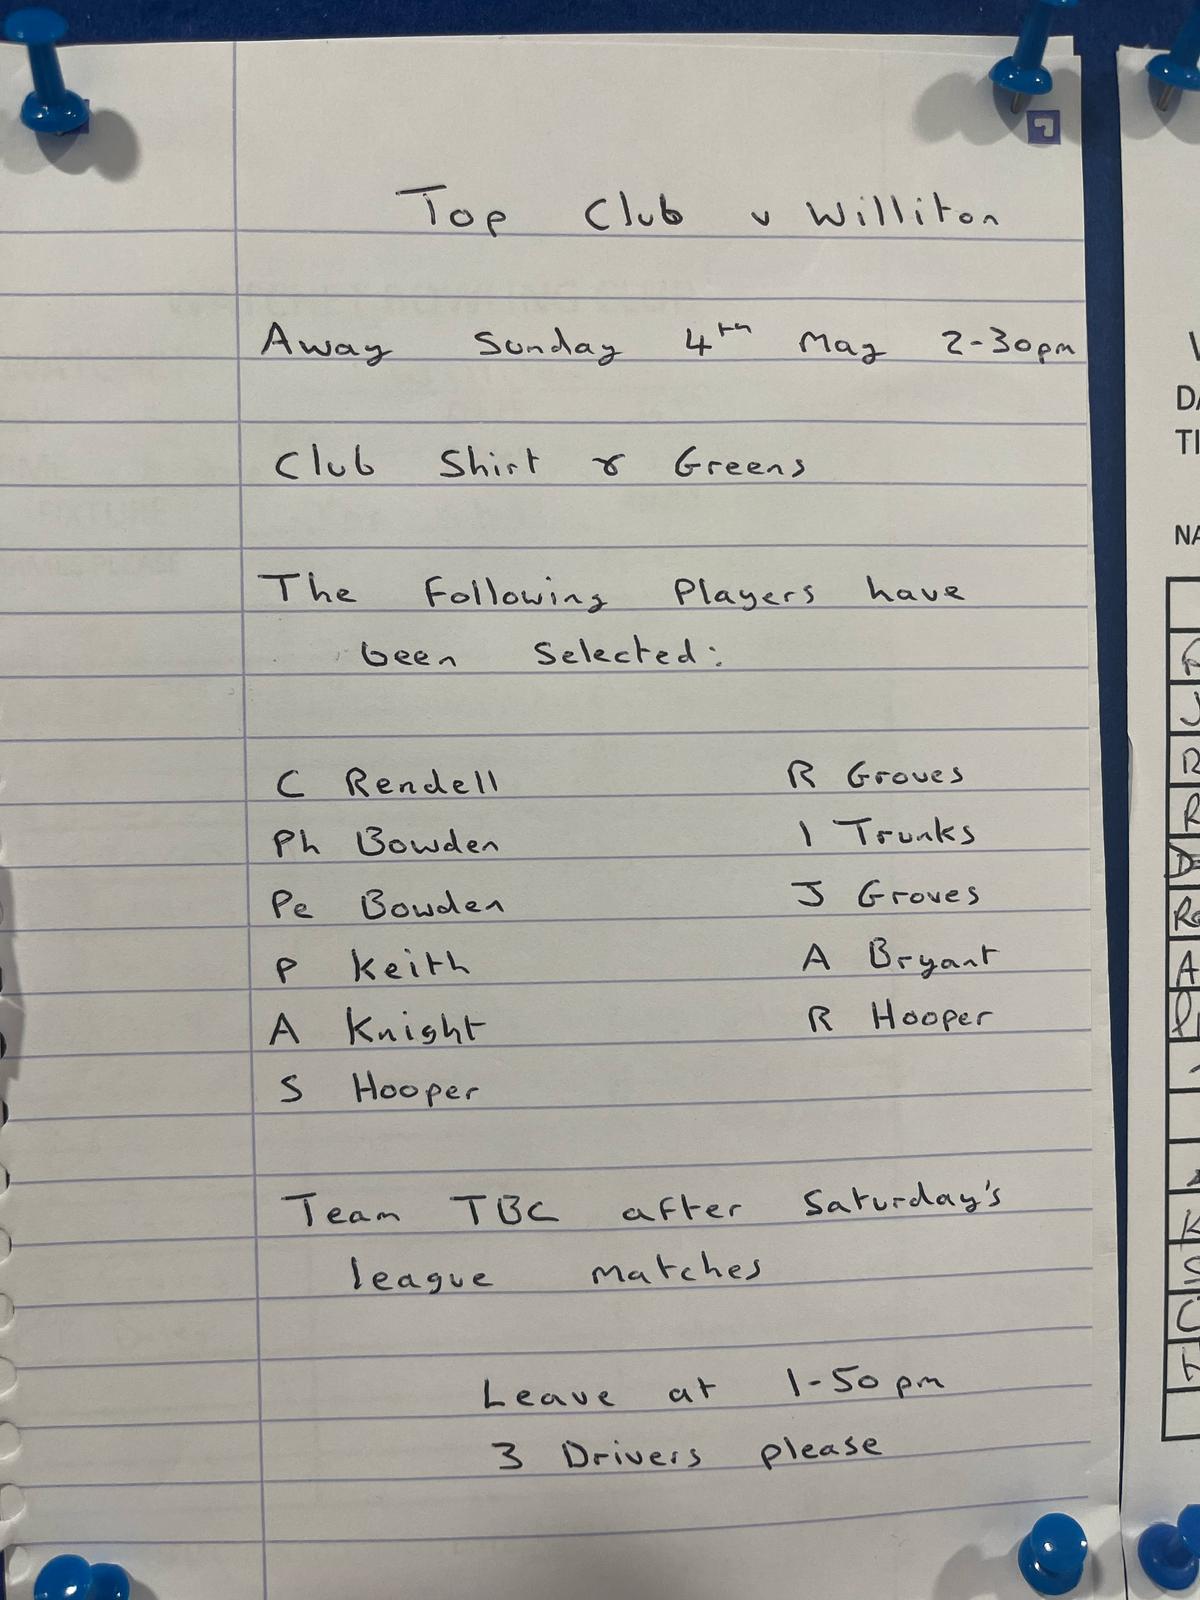 Top Club v Williton
Away Sunday 4th May 2-30pm
Club Shirt & Greens
The Following Players have
been Selected:
C Rendell R Groves
Ph Bowden I Trunks
Pe Bowden J Groves
P Keith A Bryant
A Knight R Hooper
S Hooper
Team TBC after Saturday's
league matches
Leave at 1-50pm
3 Drivers please